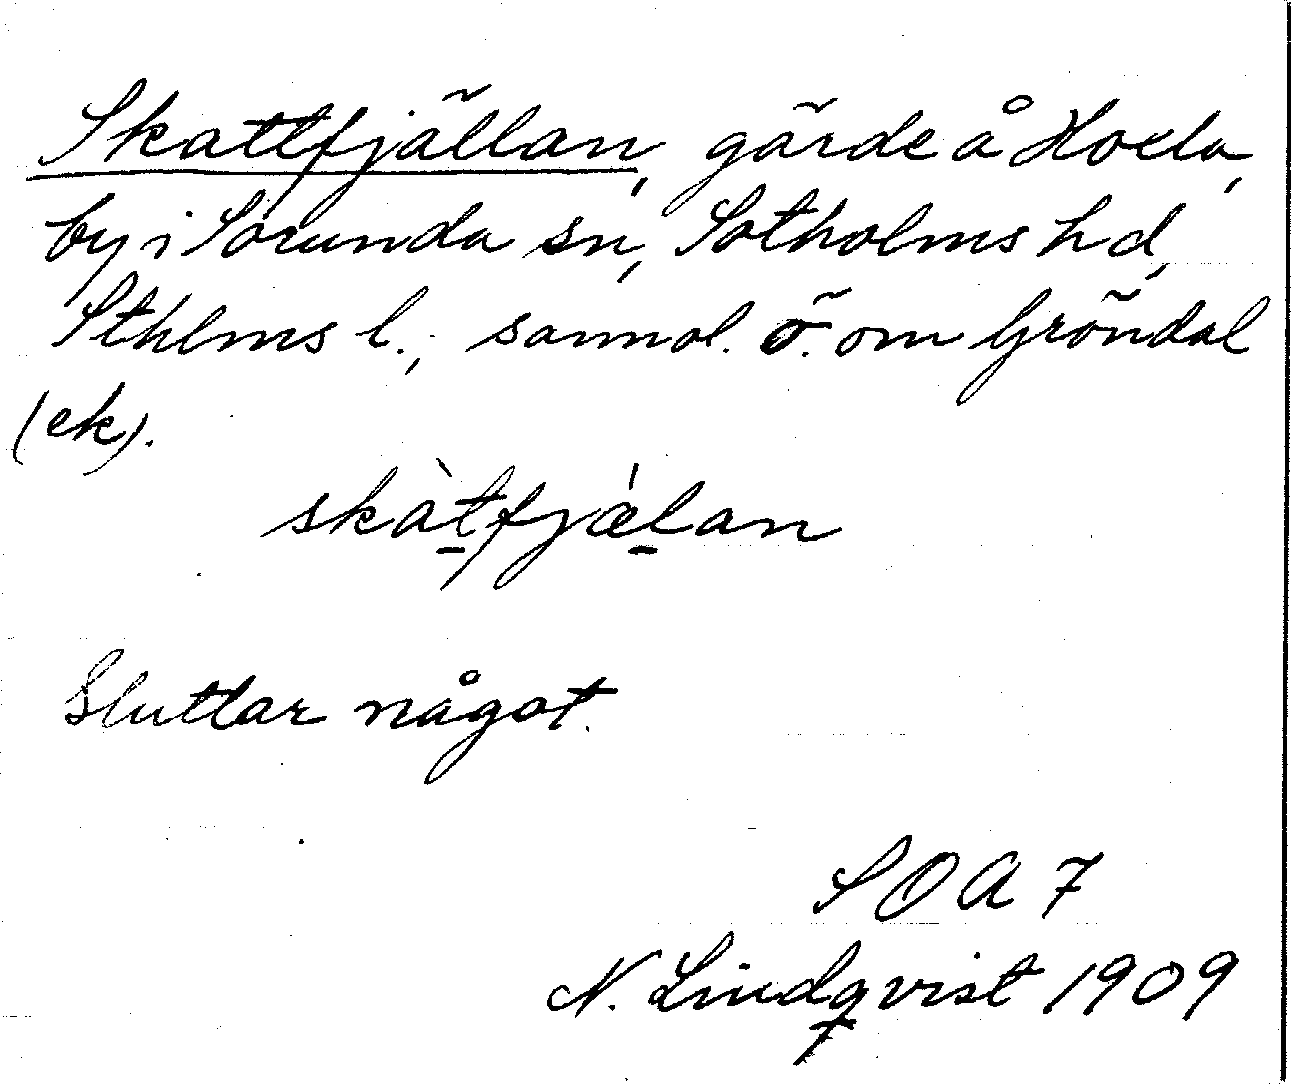 Skattfjällan, gärde å Hoxla,
by i Sorunda sn, Sotholms hd,
Sthlms l.; sannol. ö. om Gröndal
(ek).
skàtfjæ̍lan
Sluttar något.
SOA 7
N. Lindqvist 1909